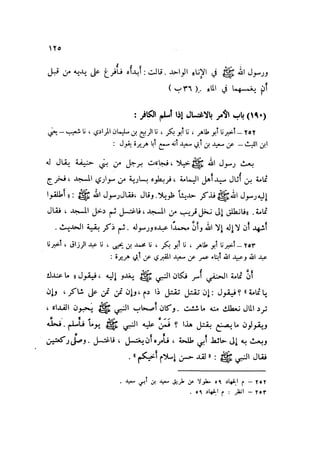 ١٢٥
ورسول الله ﷺ في الإناء الواحد. قالت: أبدأه فأفرغ على يديه من قبل
أن يغمسهما في الماء. (٣٦ ب)
(١٩٠) باب الأمر بالاغتسال إذا أسلم الكافر:
٢٥٢ – أخبرنا أبو طاهر، نا أبو بكر، نا الربيع بن سليمان المرادي، نا شعيب – يعني
ابن الليث – عن سعيد بن أبي سعيد أنه سمع أبا هريرة يقول:
بعث رسول الله ﷺ خيلا، فجاءت برجل من بني حنيفة يقال له
ثمامة بن أثال سيد أهل اليمامة، فربطوه بسارية من سواري المسجد، فخرج
إليه رسول الله ﷺ فذكر حديثاً طويلا. وقال: فقال رسول الله ﷺ: «أطلقوا
ثمامة». فانطلق إلى نخل قريب من المسجد، فاغتسل ثم دخل المسجد، فقال
أشهد أن لا إله إلا الله وأن محمداً عبده ورسوله. ثم ذكر بقية الحديث.
٢٥٣ – أخبرنا أبو طاهر، نا أبو بكر، نا محمد بن يحيى، نا عبد الرزاق، أخبرنا
عبد الله وعبيد الله أبناء عمر عن سعيد المقبري عن أبي هريرة:
أن ثمامة الحنفي أسر فكان النبي ﷺ يغدو إليه، فيقول: «ما عندك
يا ثمامة» ؟ فيقول: إن تقتل تقتل ذا دم، وإن تمن تمن على شاكر، وإن
ترد المال نعطك منه ما شئت. وكان أصحاب النبي ﷺ يحبون الفداء،
ويقولون ما يصنع بقتل هذا ؟ فمن عليه النبي ﷺ يوماً فأسلم. فحله
وبعث به إلى حائط أبي طلحة، فأمره أن يغتسل، فاغتسل. وصلى ركعتين
فقال النبي ﷺ: «لقد حسن إسلام أخيكم».
٢٥٢ – م الجهاد ٥٩ مطولا من طريق سعيد بن أبي سعيد.
٢٥٣ – انظر: م الجهاد ٥٩.